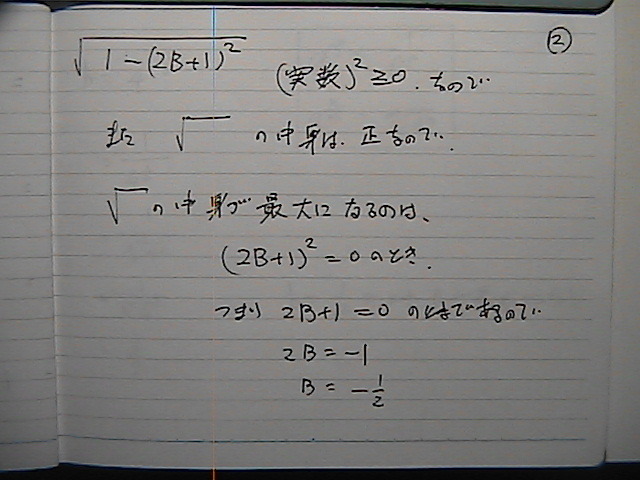 ②
√1-(2B+1)²
(実数)²≧0. なので
また √ の中身は、正なので、
√ の中身が最大になるのは、
(2B+1)²=0のとき.
つまり 2B+1=0 のときであるので
2B=-1
B=-1/2